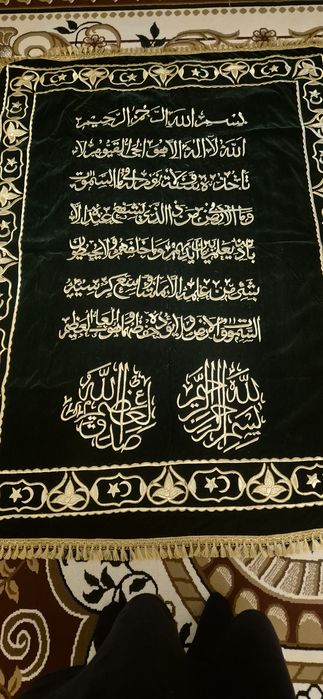 بسم الله الرحمن الرحيم
الله لا اله الا هو الحي القيوم لا
تاخذه سنة ولا نوم له ما في السموات
وما في الارض من ذا الذي يشفع عنده الا
باذنه يعلم ما بين ايديهم وما خلفهم ولا يحيطون
بشيء من علمه الا بما شاء وسع كرسيه
السموات والارض ولا يؤده حفظهما وهو العلي العظيم
بسم الله الرحمن الرحيم
صدق الله العظيم